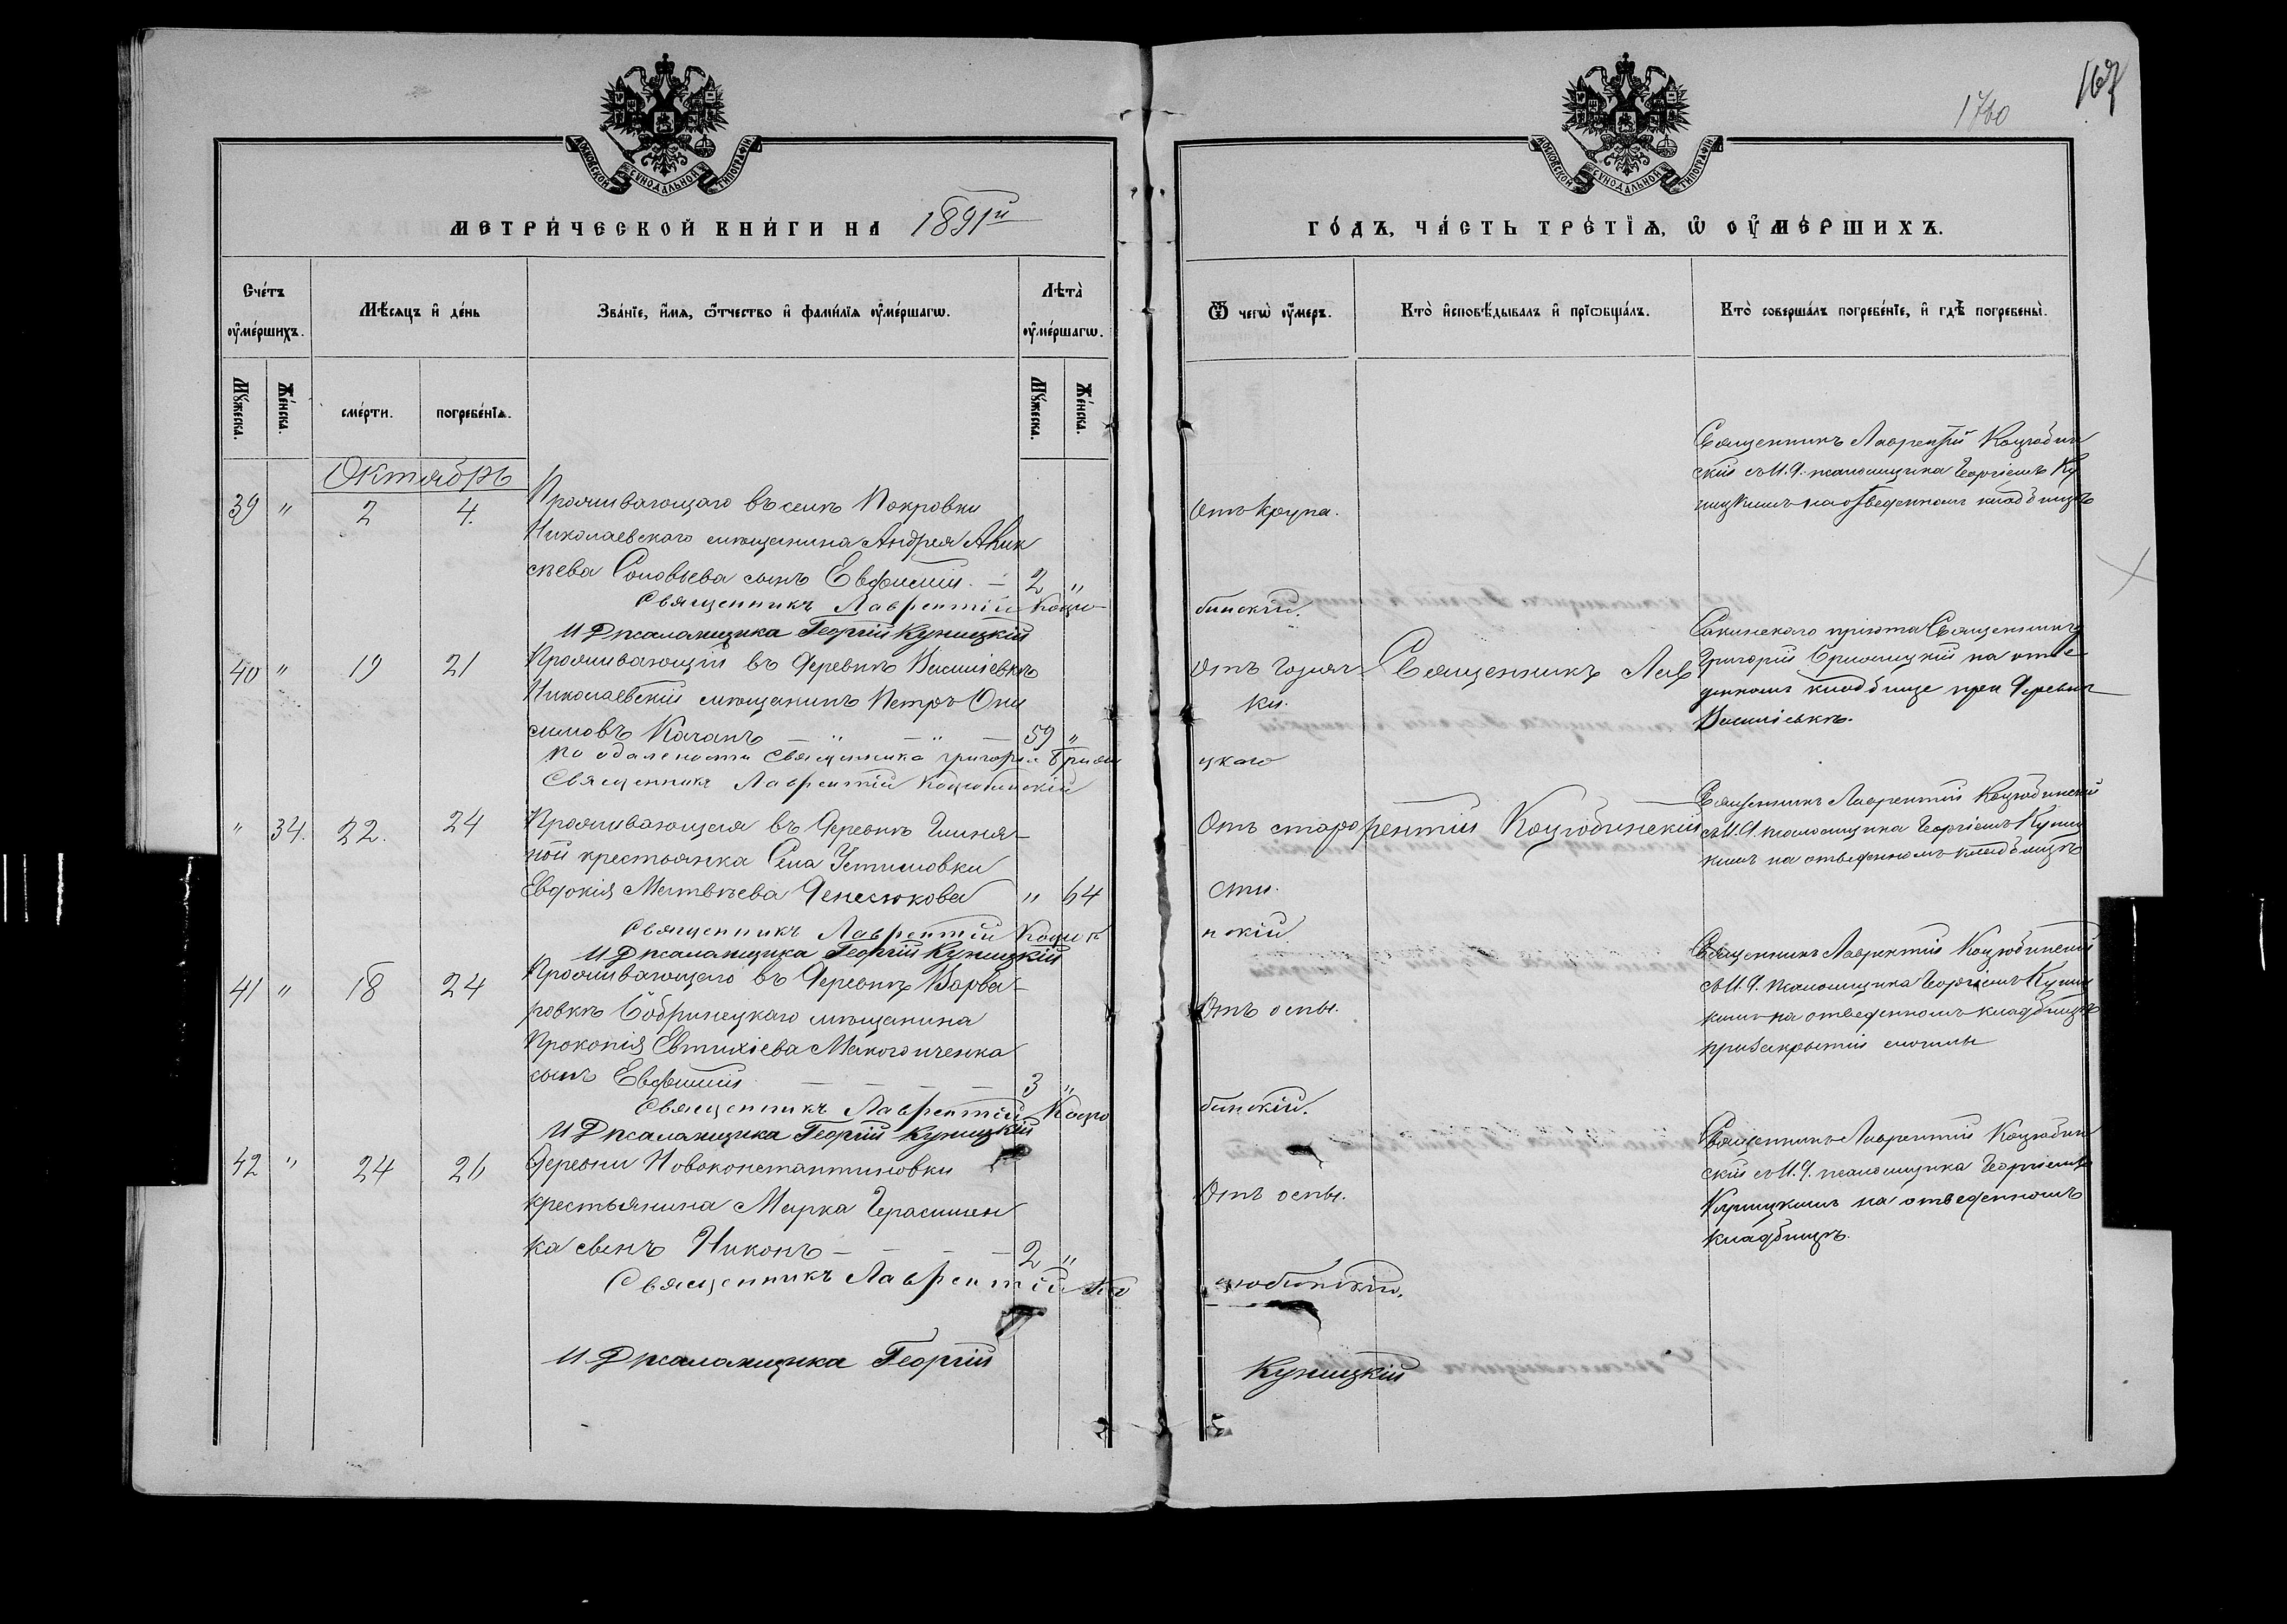 МОСКОВСКОЙ СѴНОДАЛЬНОЙ ТИПОГРАФІИ
МЕТРИ́ЧЕСКОЙ КНИ́ГИ НА 1891й
Сче́тъ ᲂу҆ме́ршихъ.
Мѣ́сѧцъ и҆ де́нь
Зва́нїе, и҆́мѧ, ѻ҆́тчество и҆ фами́лїѧ ᲂу҆ме́ршагѡ.
Лѣта̀ ᲂу҆ме́ршагѡ.
Мꙋ́жеска.
Же́нска.
сме́рти.
погребе́нїѧ.
Мꙋ́жеска.
Же́нска.
Октябрь
39 " 2 4. Проживающаго въ селѣ Покровки
Николаевскаго мѣщанина Андрея Алек
сѣева Соловьева сынъ Евфимій. — 2 "
Священникъ Лаврентій Коцю
И Д псаломщика Георгій Куницкій
40 " 19 21 Проживающій въ деревнѣ Василіевкѣ
Николаевскій мѣщанинъ Петръ Они
симовъ Качанъ — " — " — 59 "
по одалености Священника Григорія
Священникъ Лаврентій Коцюбинскій
" 34. 22. 24 Проживающая въ деревнѣ Глиня-
ной крестьянка Села Устимовки
Евдокія Матвѣева Денесюкова " 64
Священникъ Лаврентій Коцю
И Д псаломщика Георгій Куницкій
41 " 18 24 Проживающаго въ деревнѣ Варва-
ровкѣ Бобринецкаго мѣщанина
Прокопія Евтихіева Макогонченка
сынъ Евфимій — — — — 3 "
Священникъ Лаврентій Коцю
И Д псаломщика Георгій Куницкій
42 " 24 26 Деревни Новоконстантиновки
крестьянина Марка Герасимен
ка сынъ Никонъ — — — — 2 "
Священникъ Лаврентій Ко
И Д псаломщика Георгій
1760
167
МОСКОВСКОЙ СѴНОДАЛЬНОЙ ТИПОГРАФІИ
ГО́ДЪ, ЧА́СТЬ ТРЕ́ТЇѦ, Ѡ҆ ОУ҆МЕ́РШИХЪ.
Ѿ чегѡ̀ ᲂу҆́меръ.
Кто̀ и҆сповѣ́дывалъ и҆ прїѡбща́лъ.
Кто̀ соверша́лъ погребе́нїе, и҆ гдѣ̀ погребены̀.
Отъ крупа.
Священникъ Лаврентій Коцюбин
скій съ И. Д. псаломщика Георгіемъ Ку
ницкимъ на отведенномъ кладбищѣ
бинскій.
Отъ горяч
ки.
Священникъ Лав
Сакинскаго пріюта Священникъ
Григорій на отве-
денномъ кладбище при деревнѣ
Василіевкѣ.
цкаго
Отъ старо
сти.
рентій Коцюбинскій
Священникъ Лаврентій Коцюбинскій
съ И. Д. псаломщика Георгіемъ Куниц
кимъ на отведенномъ кладбищѣ
нскій.
Отъ оспы.
Священникъ Лаврентій Коцюбинскій
съ И. Д. псаломщика Георгіемъ Куниц
кимъ на отведенномъ кладбищѣ
при закрытіи могилы
бинскій.
Отъ оспы.
Священникъ Лаврентій Коцюбин
скій съ И. Д. псаломщика Георгіемъ
Куницкимъ на отведенномъ
кладбищѣ.
цюбинскій.
Куницкій